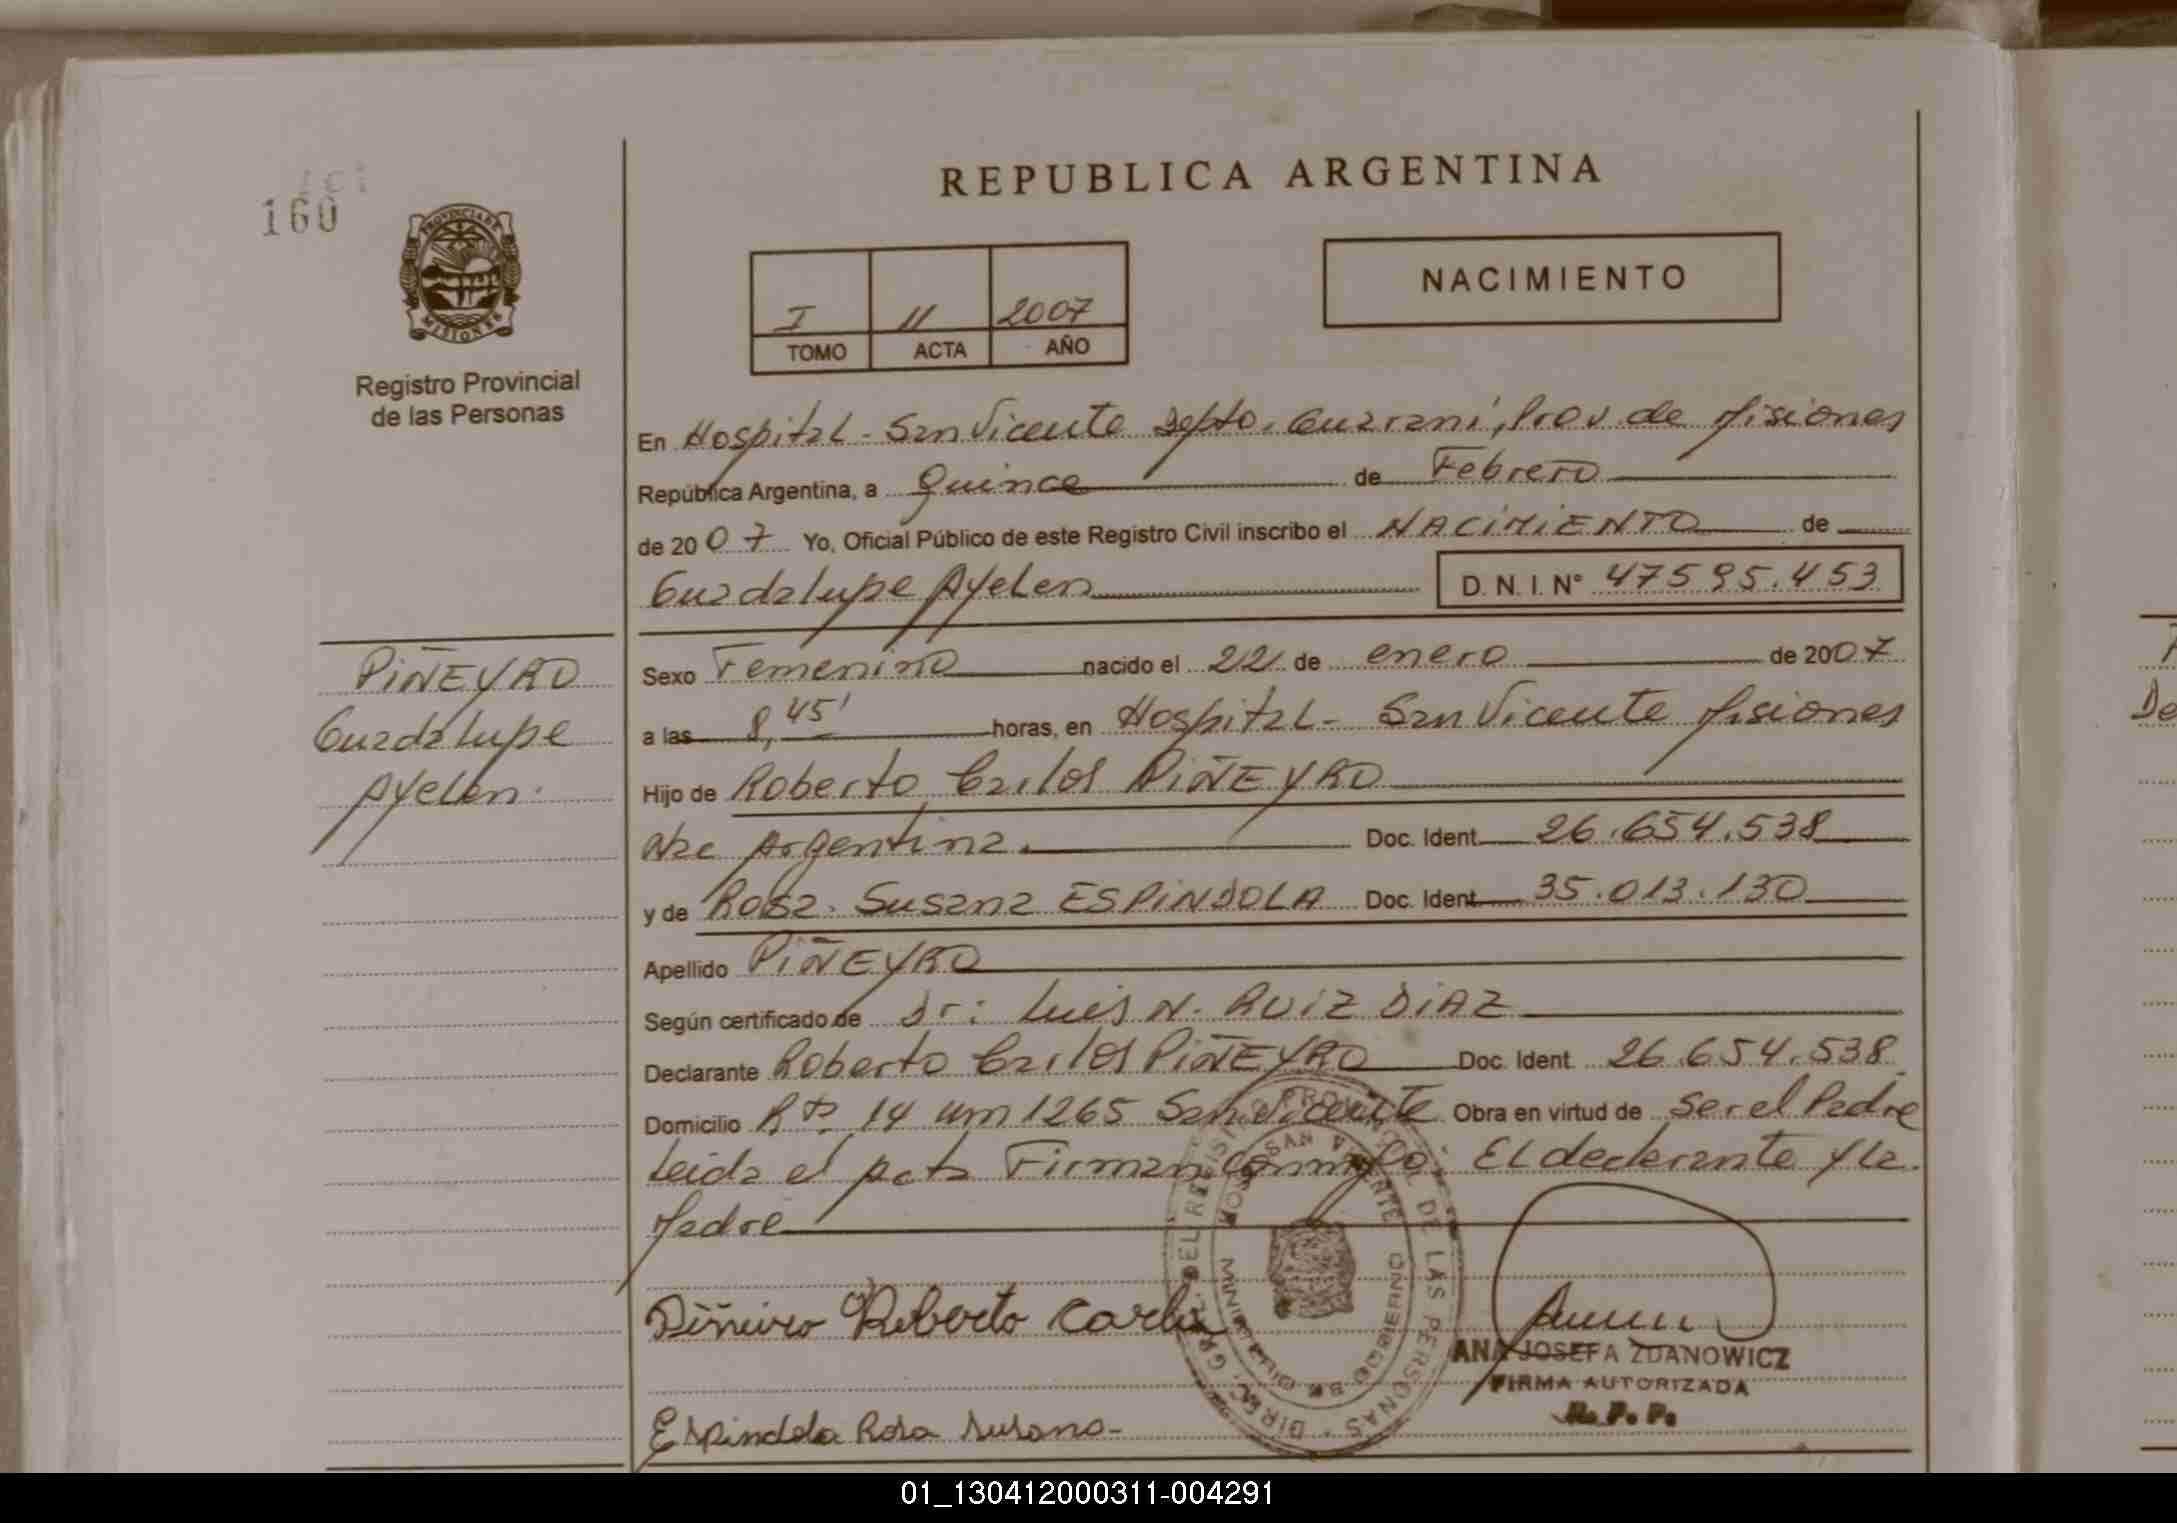 160
PROVINCIA DE
MISIONES
Registro Provincial
de las Personas
REPUBLICA ARGENTINA
I 11 2007
TOMO ACTA AÑO
NACIMIENTO
En Hospital - San Vicente Depto. Guarani, Prov. de Misiones
República Argentina, a Quince de Febrero
de 2007 Yo, Oficial Público de este Registro Civil inscribo el NACIMIENTO de
Guadalupe Ayelen D. N. I. N° 47595.453
Sexo Femenino nacido el 22 de enero de 2007
a las 8,45' horas, en Hospital - San Vicente Misiones
Hijo de Roberto Carlos PIÑEYRO
Nac Argentina. Doc. Ident. 26.654.538
y de Rosa Susana ESPINDOLA Doc. Ident. 35.013.130
Apellido PIÑEYRO
Según certificado de Dr: Luis N. RUIZ DIAZ
Declarante Roberto Carlos PIÑEYRO Doc. Ident. 26.654.538
Domicilio Rta 14 Km 1265 San Vicente Obra en virtud de ser el Padre
Leida el Acta Firman conmigo: El declarante y la
Madre
PIÑEYRO
Guadalupe
Ayelen.
Piñeiro Roberto Carlos
Espindola Rosa Susana-
ANA JOSEFA ZDANOWICZ
FIRMA AUTORIZADA
R. P. P.
01_130412000311-004291